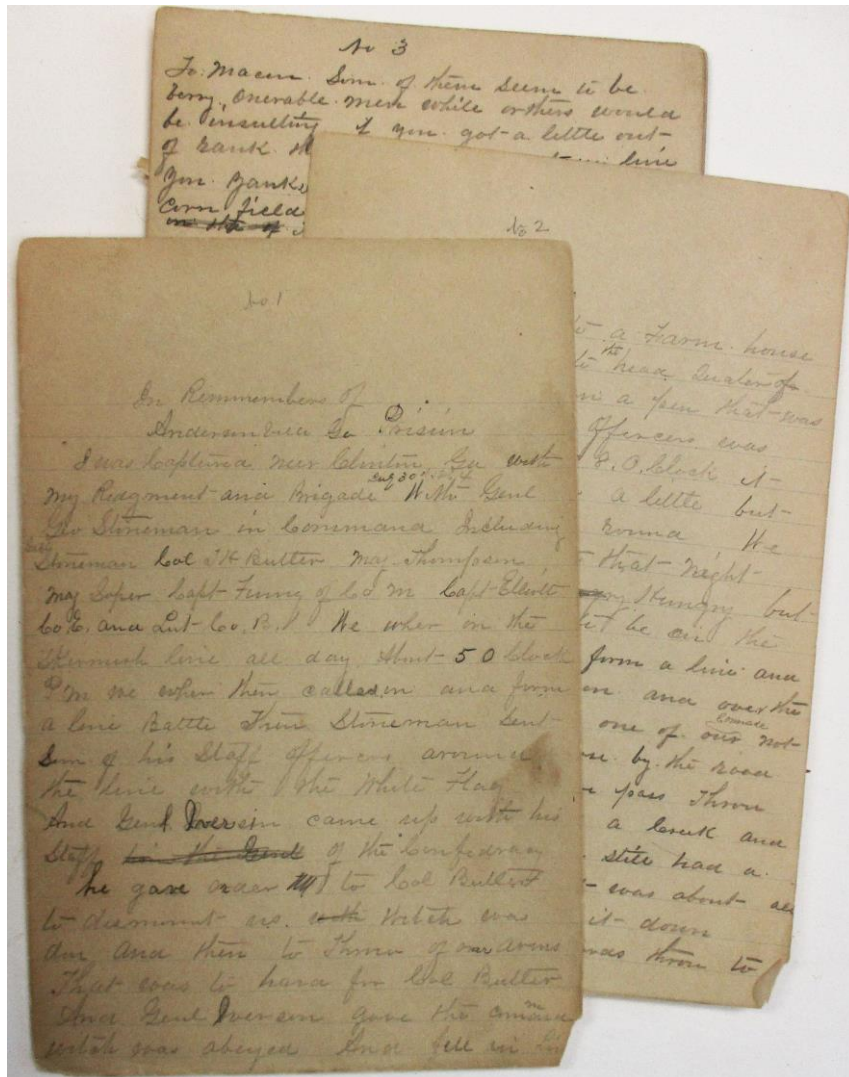 No 3
To. Macon. Som. of them seem to be
verry, Onerable. men while orthers would
be. insulting if you. got a little out-
of rank.
line
you. Yanke
Corn field
No 2
to a Farm. house
to the head Quater of
in a pen that-was
Offercers was
8. O,Clock it-
a little but-
round We
that-night-
Hungry but-
be on the
form a line and
and over the
one of. our not-
by. the road
pass Throu
a Creek and
still had a.
was about all
it-down
throu to
No 1
In Remmembers of
Andersonvill Ga Prisin
I was Captured near Clinton Ga with
July 30
my Redgment-and Brigade With Genl
Geo Stoneman in Command Including
Stoneman Col J H Butler Maj Thompson
Maj Soper Capt of Co M Capt Elliott
Co E. and Lut-Co. B. We wher in the
Skermush line all day About-5 O Clock
P m we wher then called in and form
a line Battle Then Stoneman Sent-
Som of his Staff offercers around
the line with the White Flag
And Genl Iversin came up with his
Staff of the Confedracy
he gave order to Col Butler
to dismount us. witch was
don and then to Throu of our arms
That was to hard for Col Butler
And Genl Iversin gave the command
witch was abeyed And fell in